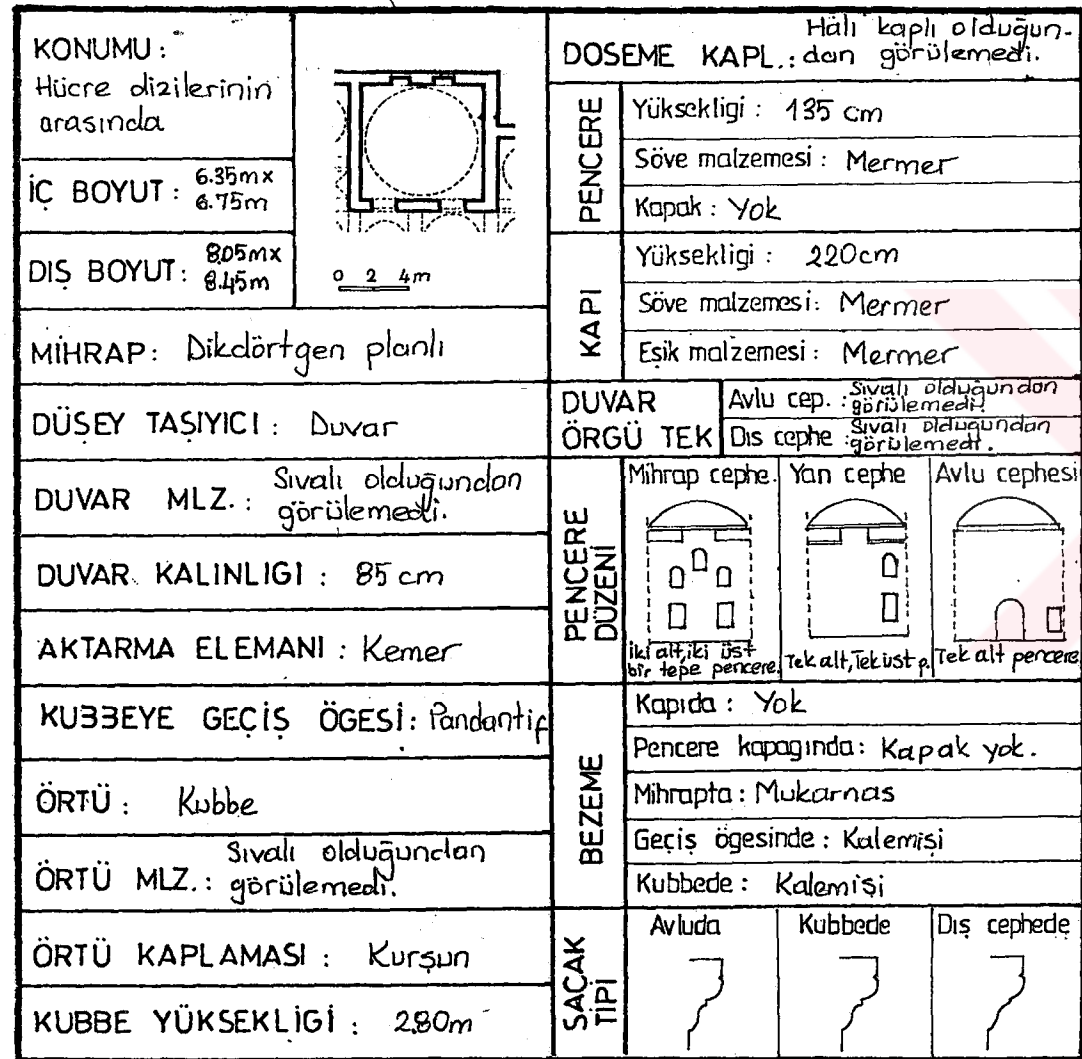 KONUMU:
Hücre dizilerinin
arasında
İÇ BOYUT: 6.35mx
6.75m
DIŞ BOYUT: 8.05mx
8.45m
0 2 4m
MİHRAP: Dikdörtgen planlı
DÜŞEY TAŞIYICI: Duvar
DUVAR MLZ.: Sıvalı olduğundan
görülemedi.
DUVAR KALINLIGI: 85 cm
AKTARMA ELEMANI: Kemer
KUBBEYE GEÇİŞ ÖGESİ: Pandantif
ÖRTÜ: Kubbe
ÖRTÜ MLZ.: Sıvalı olduğundan
görülemedi.
ÖRTÜ KAPLAMASI: Kurşun
KUBBE YÜKSEKLİGİ: 280m
DOSEME KAPL.: Halı kaplı olduğun-
dan görülemedi.
PENCERE
Yüksekligi: 135 cm
Söve malzemesi: Mermer
Kapak: Yok
KAPI
Yüksekligi: 220cm
Söve malzemesi: Mermer
Eşik malzemesi: Mermer
DUVAR
ÖRGÜ TEK
Avlu cep.: Sıvalı olduğundan
görülemedi.
Dıs cephe: Sıvalı olduğundan
görülemedi.
PENCERE
DÜZENİ
Mihrap cephe.
iki alt, iki üst
bir tepe pencere
Yan cephe
Tek alt, Tek üst p.
Avlu cephesi
Tek alt pencere
BEZEME
Kapıda: Yok
Pencere kapagında: Kapak yok.
Mihrapta: Mukarnas
Geçiş ögesinde: Kalemişi
Kubbede: Kalemişi
SAÇAK
TİPİ
Avluda
Kubbede
Dış cephede